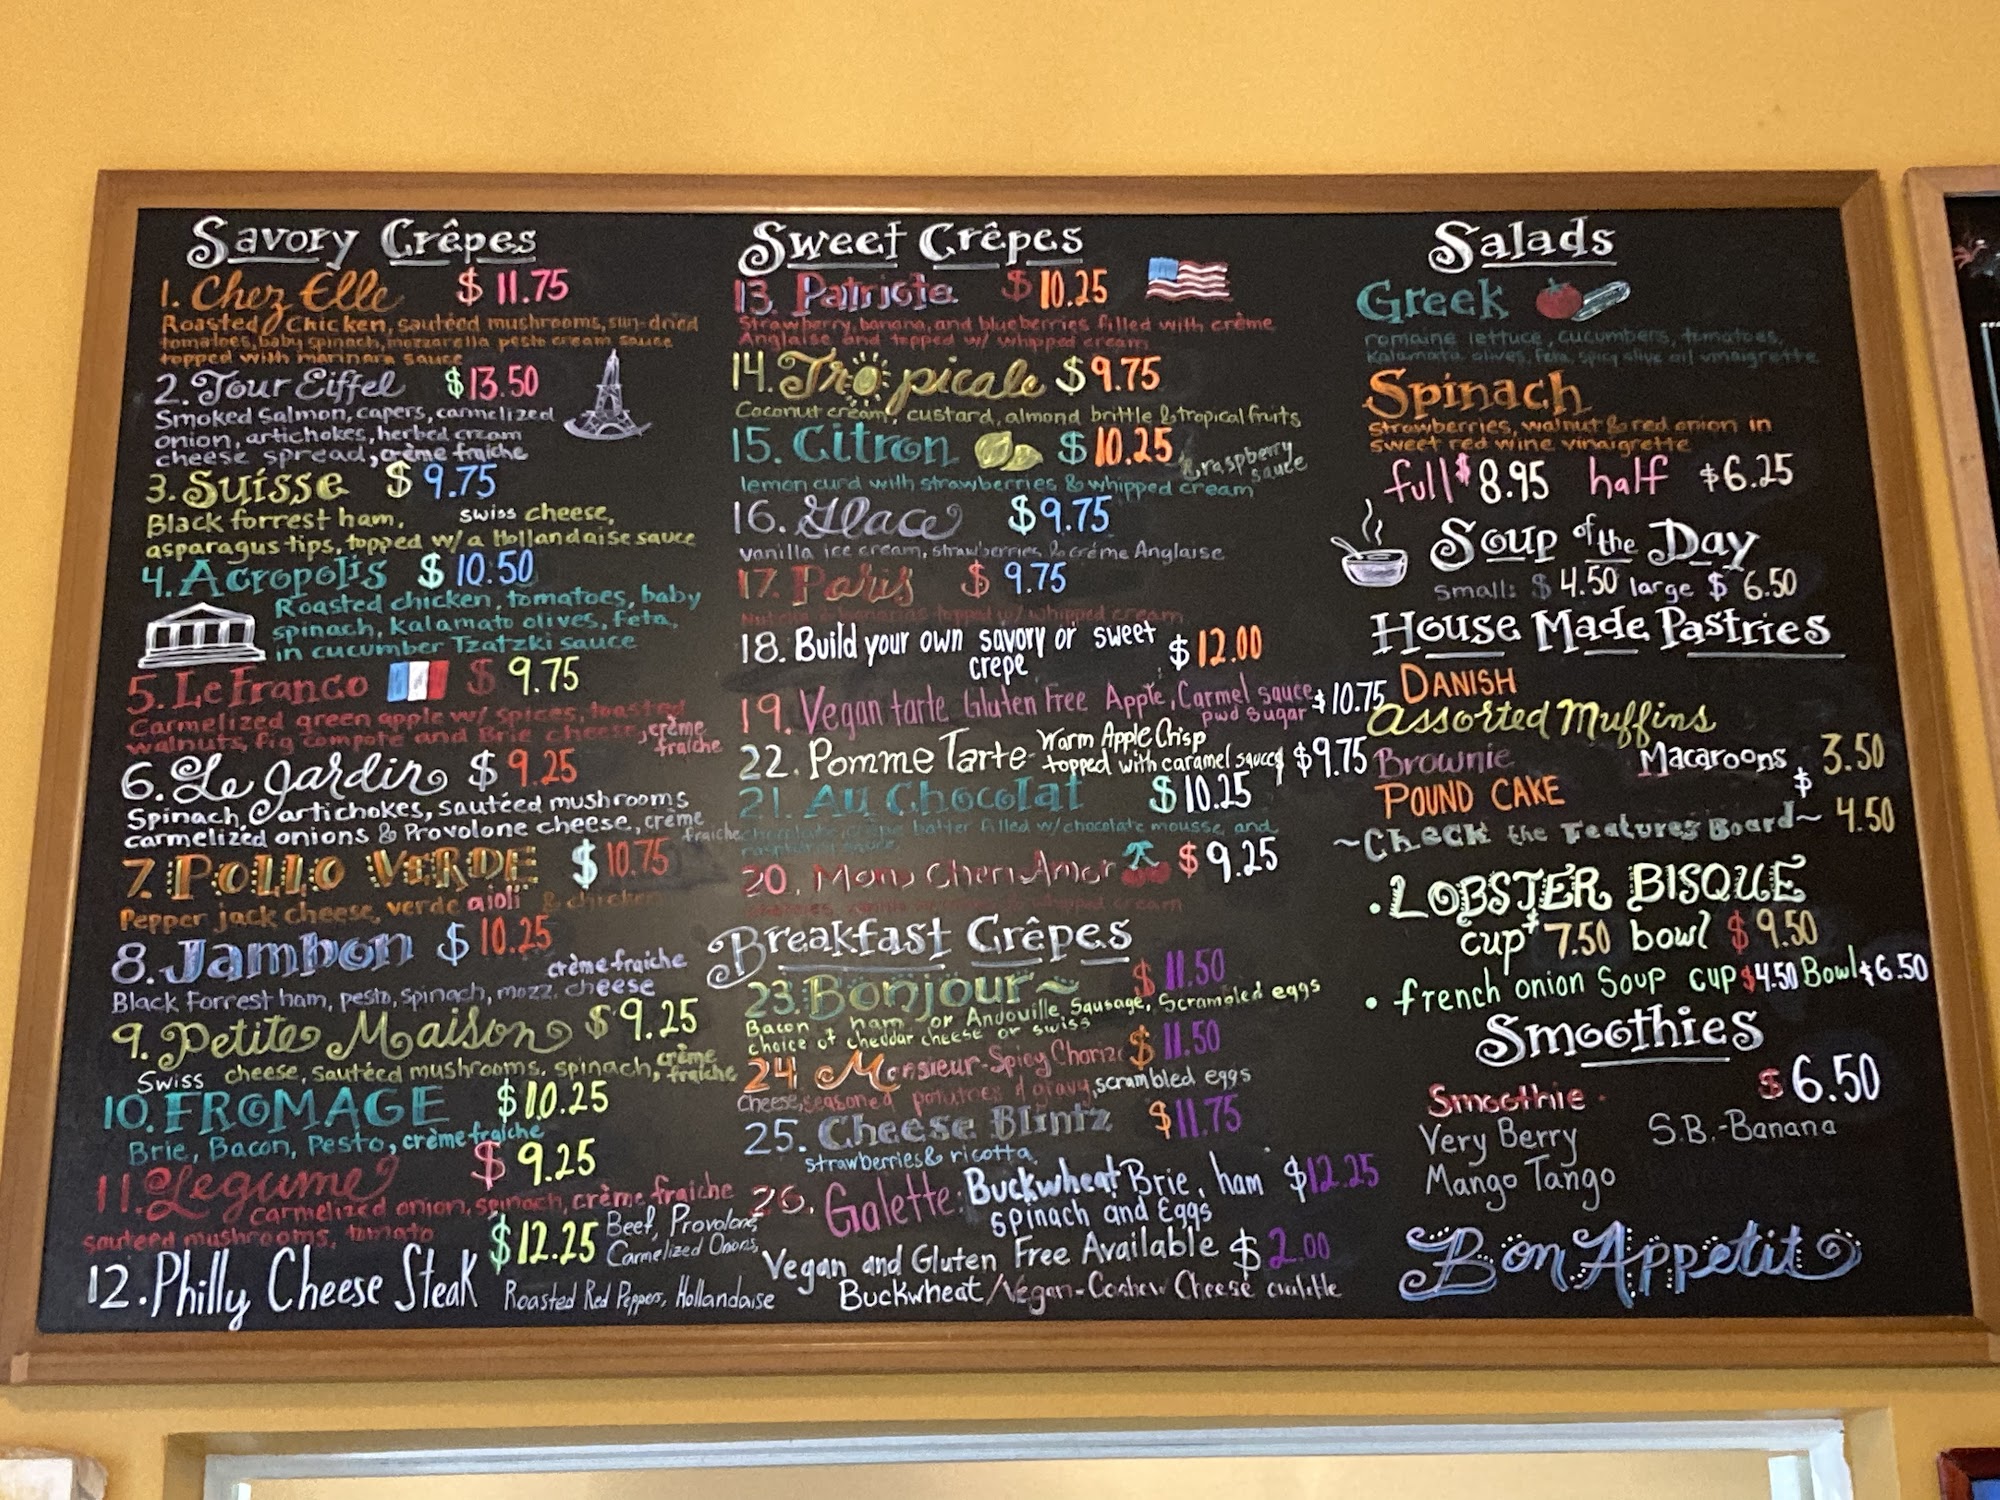 Savory Crêpes
1. Chez Elle $ 11.75
Roasted Chicken, sautéed mushrooms, sun-dried
tomatoes, baby spinach, mozzarella pesto cream sauce
topped with marinara sauce
2. Tour Eiffel $13.50
Smoked Salmon, capers, carmelized
onion, artichokes, herbed cream
cheese spread, crème fraiche
3. Suisse $9.75
Black forrest ham, swiss cheese,
asparagus tips, topped w/a Hollandaise sauce
4. Acropolis $ 10.50
Roasted chicken, tomatoes, baby
spinach, Kalamato olives, Feta,
in cucumber Tzatzki sauce
5. Le Franco $ 9.75
Carmelized green apple w/ spices, toasted
walnuts, fig compote and Brie cheese, crème
fraiche
6. Le Jardin $ 9.25
Spinach, artichokes, sautéed mushrooms
carmelized onions & Provolone cheese, crème
fraiche
7. Pollo Verde $ 10.75
Pepper jack cheese, verde aioli & chicken
8. Jambon $ 10.25
crème fraiche
Black Forrest ham, pesto, spinach, mozz. cheese
9. Petite Maison $ 9.25
Swiss cheese, sautéed mushrooms, spinach, crème
fraiche
10. FROMAGE $10.25
Brie, Bacon, Pesto, crème fraiche
11. Legume $ 9.25
carmelized onion, spinach, crème fraiche
sauteed mushrooms, tomato
12. Philly Cheese Steak $12.25 Beef, Provolone,
Carmelized Onions,
Roasted Red Peppers, Hollandaise
Sweet Crêpes
13. Patriote $ 10.25
Strawberry, banana, and blueberries filled with crème
Anglaise and topped w/ whipped cream
14. Tropicale $9.75
Coconut cream, custard, almond brittle & tropical fruits
15. Citron $ 10.25
lemon curd with strawberries & whipped cream & raspberry
sauce
16. Glace $9.75
vanilla ice cream, strawberries & créme Anglaise
17. Paris $ 9.75
topped w/ whipped cream
18. Build your own savory or sweet
crepe $12.00
19. Vegan tarte Gluten Free Apple, Carmel sauce $10.75
pwd sugar
22. Pomme Tarte - Warm Apple Crisp
topped with caramel sauce $9.75
21. Au Chocolat $ 10.25
chocolate crêpe batter filled w/chocolate mousse and
raspberry sauce
20. Mon Cheri Amor $ 9.25
whipped cream
Breakfast Crêpes
23. Bonjour~ $ 11.50
Bacon, ham, or Andouille Sausage, Scrambled eggs
choice of cheddar cheese or swiss
24 Monsieur-Spicy Chorizo $ 11.50
cheese, seasoned potatoes & gravy, scrambled eggs
25. Cheese Blintz $11.75
strawberries & ricotta
26. Galette: Buckwheat Brie, ham $12.25
spinach and Eggs
Vegan and Gluten Free Available $ 2.00
Buckwheat/Vegan-Cashew Cheese available
Salads
Greek
romaine lettuce, cucumbers, tomatoes,
Kalamata olives, Feta, spicy olive oil vinaigrette
Spinach
strawberries, walnut & red onion in
sweet red wine vinaigrette
full $8.95 half $6.25
Soup of the Day
small: $ 4.50 large $ 6.50
House Made Pastries
DANISH
Assorted Muffins
Brownie Macaroons 3.50
POUND CAKE $
~Check the Features Board~ 4.50
• LOBSTER BISQUE
cup $ 7.50 bowl $ 9.50
• french onion Soup cup $4.50 Bowl $6.50
Smoothies
Smoothie $ 6.50
Very Berry S.B.-Banana
Mango Tango
Bon Appetit